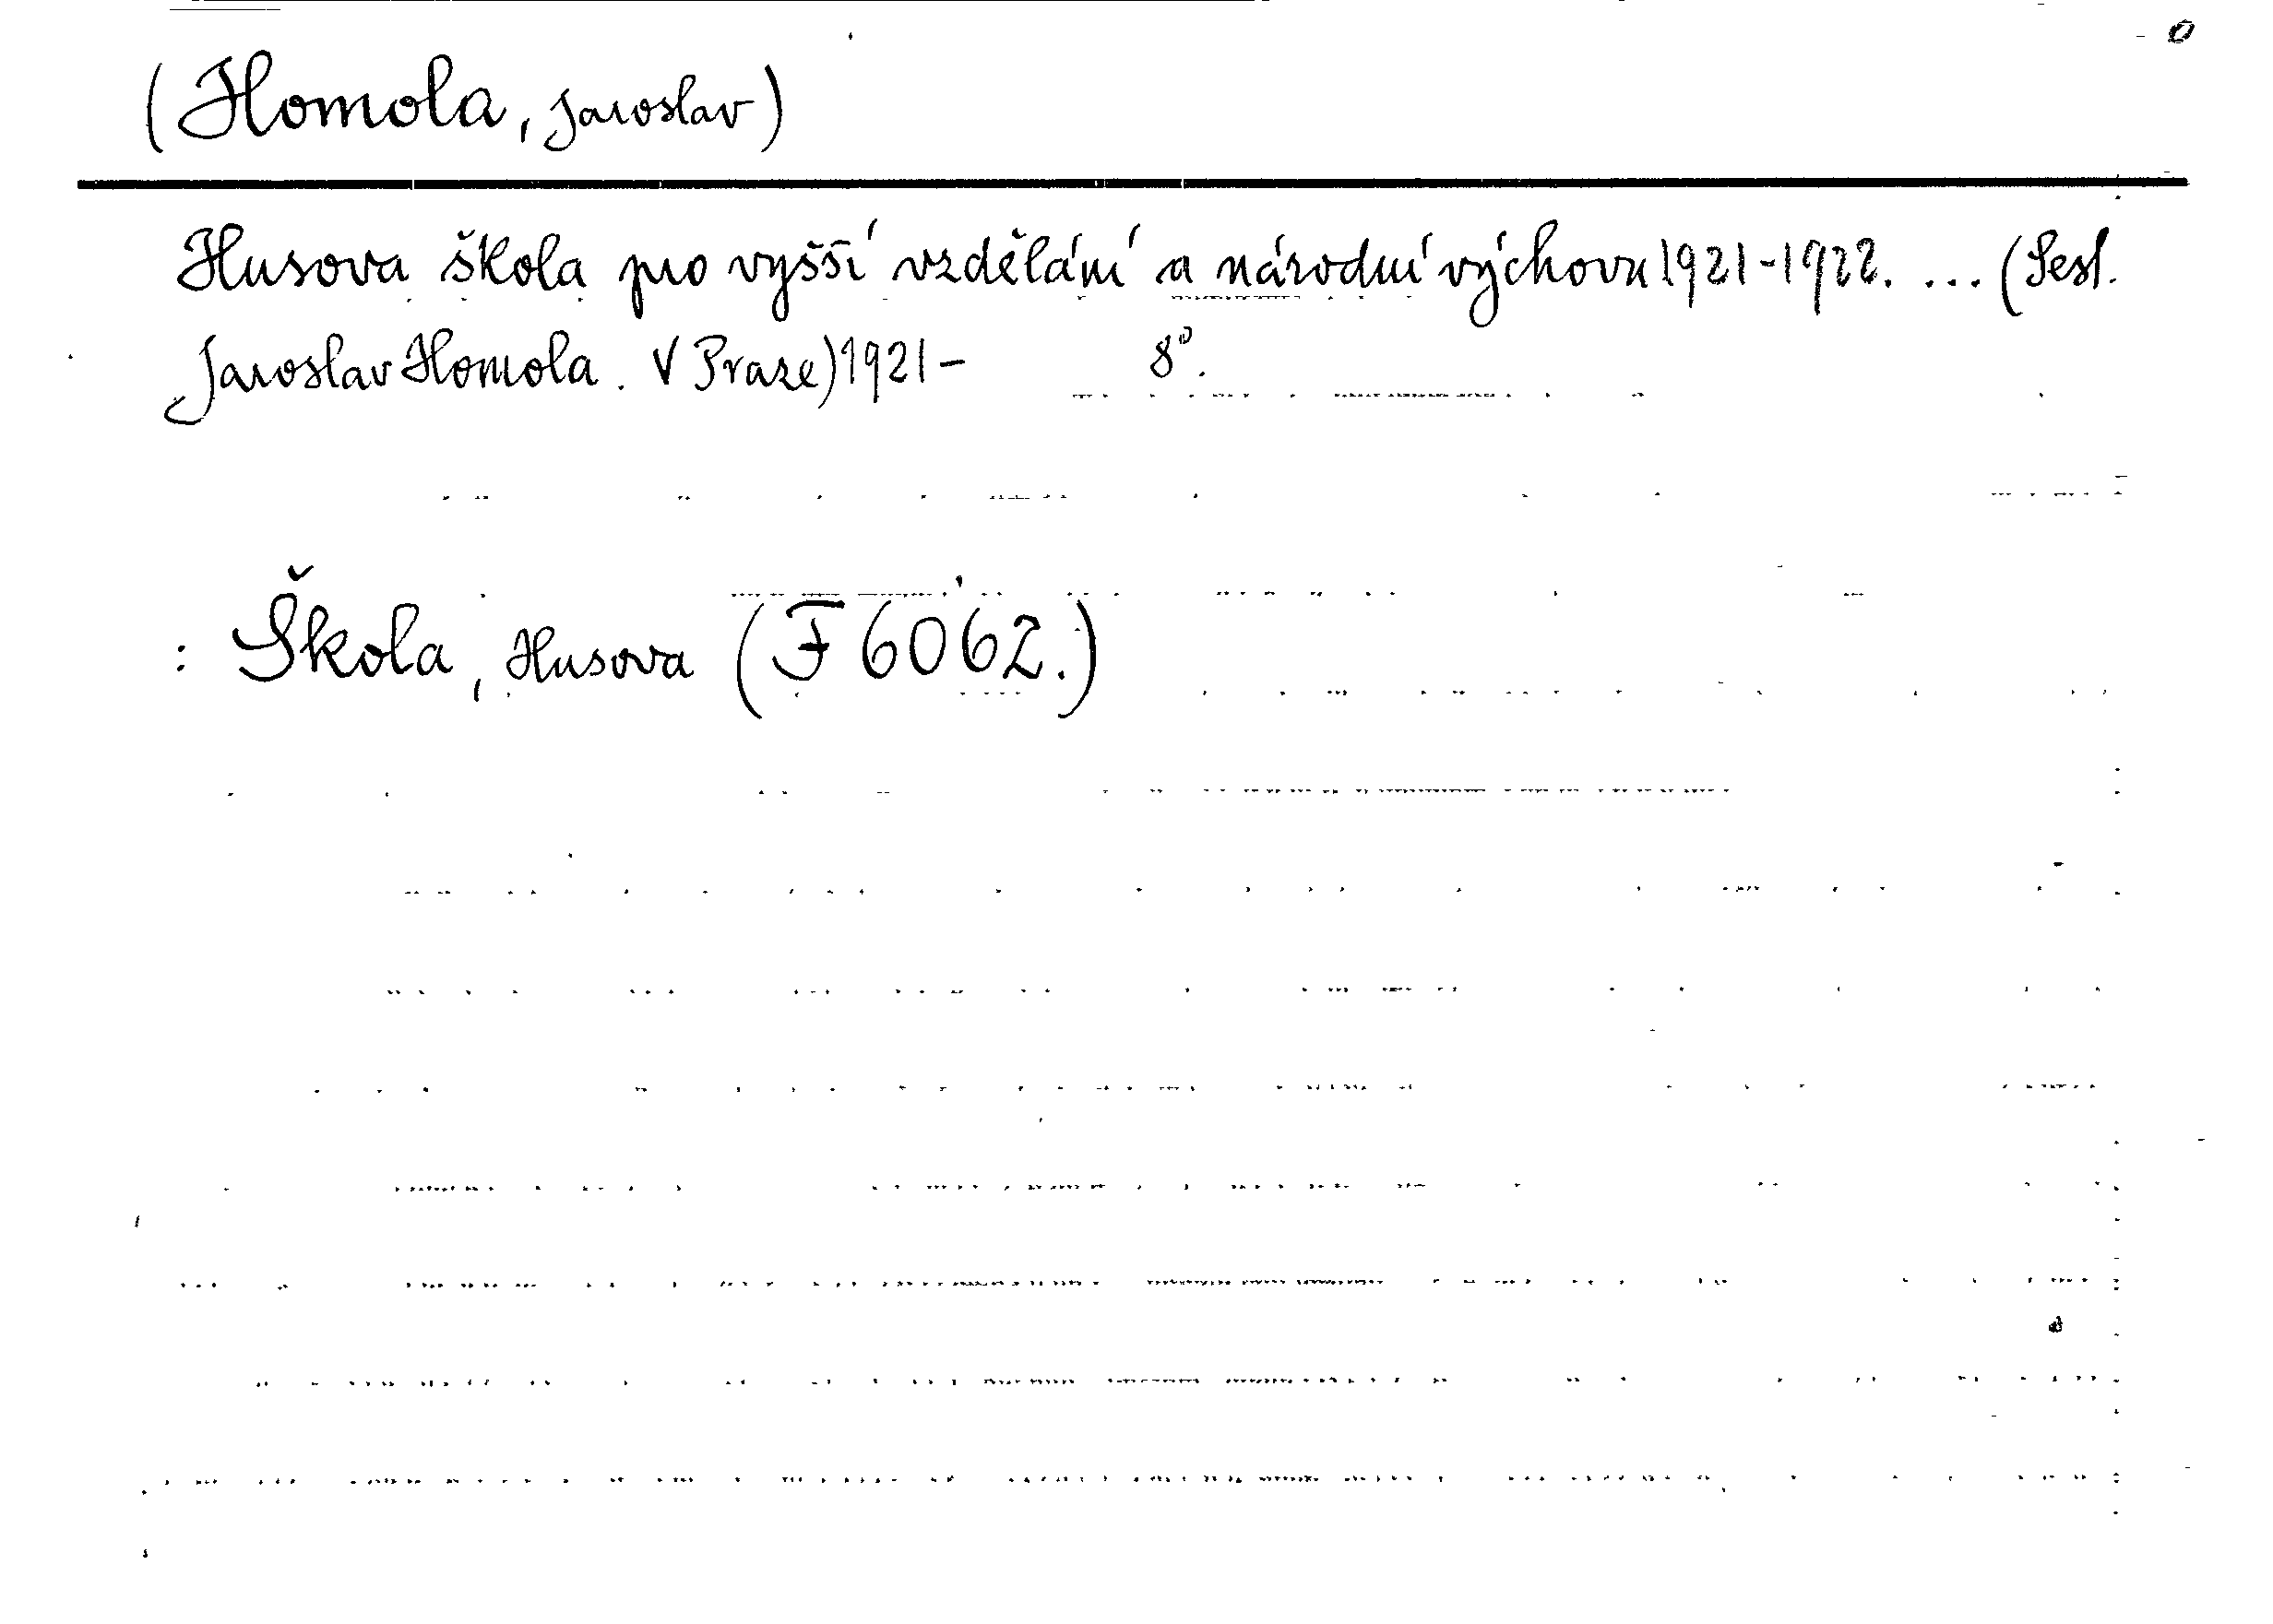 (Homola, Jaroslav)
Husova škola pro vyšší vzdělání a národní výchovu 1921-1922. ... (Sest.
Jaroslav Homola. V Praze) 1921- 8°.
: Škola, Husova (F 6062.)